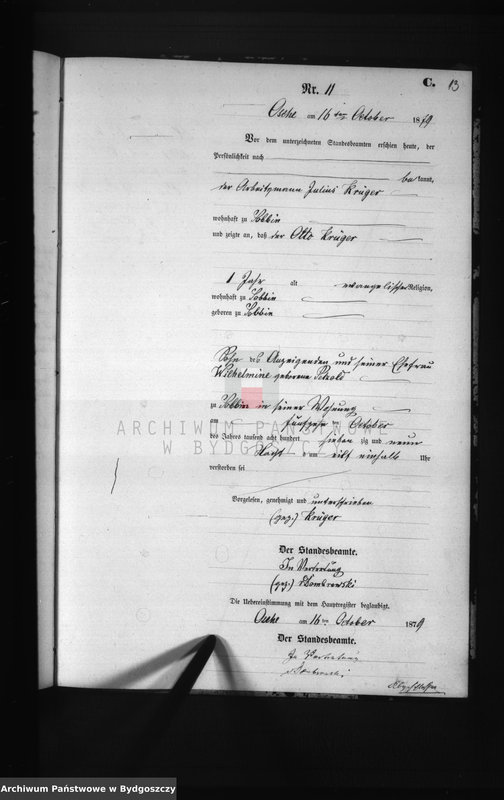 C. 13
Nr. 11
Osche am 16ten October 1879
Vor dem unterzeichneten Standesbeamten erschien heute, der
Persönlichkeit nach
bekannt,
der Arbeitsmann Julius Krüger
wohnhaft zu
und zeigte an, daß der Otto Krüger
1 Jahr alt evangelischer Religion,
wohnhaft zu
geboren zu
Sohn des Anzeigenden und seiner Ehefrau
Wilhelmine geborene
zu in seiner Wohnung
am October
des Jahres tausend acht hundert sieben zig und neun
Nachts um eilf einhalb Uhr
verstorben sei
Vorgelesen, genehmigt und unterschrieben
(gez.) Krüger
Der Standesbeamte.
In Vertretung
(gez.) Dombrowski
Die Uebereinstimmung mit dem Hauptregister beglaubigt.
Osche am 16ten October 1879
Der Standesbeamte.
In Vertretung
Dombrowski
ARCHIWUM PAŃSTWOWE
W BYDGOSZCZY
Archiwum Państwowe w Bydgoszczy